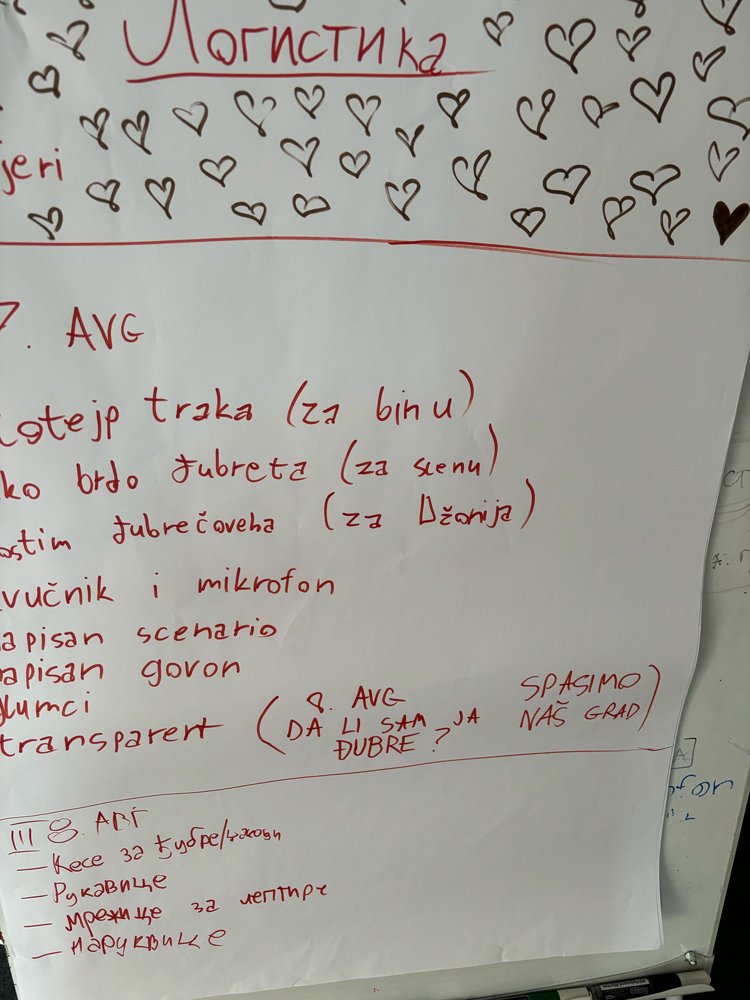 Логистика
jeri
7. AVG
lotejp traka (za binu)
ko brdo đubreta (za scenu)
ostim đubrečoveka (za Džonija)
vučnik i mikrofon
apisan scenario
apisan govor
lumci
transparent (8. AVG DA LI SAM JA ĐUBRE? SPASIMO NAŠ GRAD)
III 8. АВГ
— Кесе за ђубре/џакови
— Рукавице
— мрежице за лептире
— наруквице